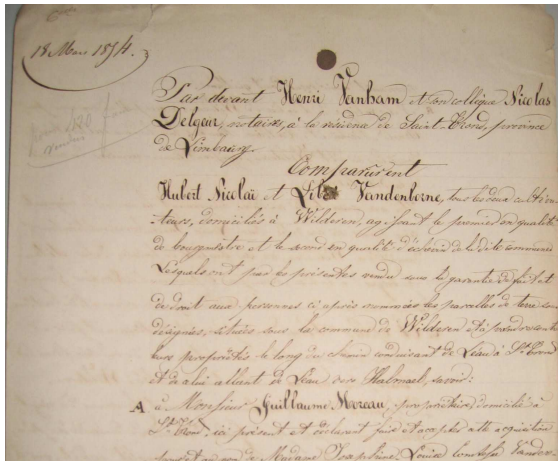 18 Mars 1854.
Par devant Henri Vanham et son collègue Nicolas
Delgeur, notaires, à la résidence de Saint-Trond, province
de Limbourg.
Comparurent
Hubert Nicolaï et Vandenborne, tous les deux cultiva-
teurs, domiciliés à Wilderen, agissant le premier en qualité
de bourgmestre et le second en qualité d'échevin de la dite commune
Lesquels ont par les présentes vendu sous la garantie de fait et
de droit aux personnes ci après nommées les parcelles de terre
désignées, situées sous la commune de Wilderen et à prendre
leurs propriétés le long du chemin conduisant de Léau à St Trond
et de celui allant de Léau vers Halmael, savoir:
A à Monsieur Guillaume Moreau, propriétaire, domicilié à
St Trond, ici présent et déclarant faire et accepter cette acquisition
au nom de Madame Josephine Louise